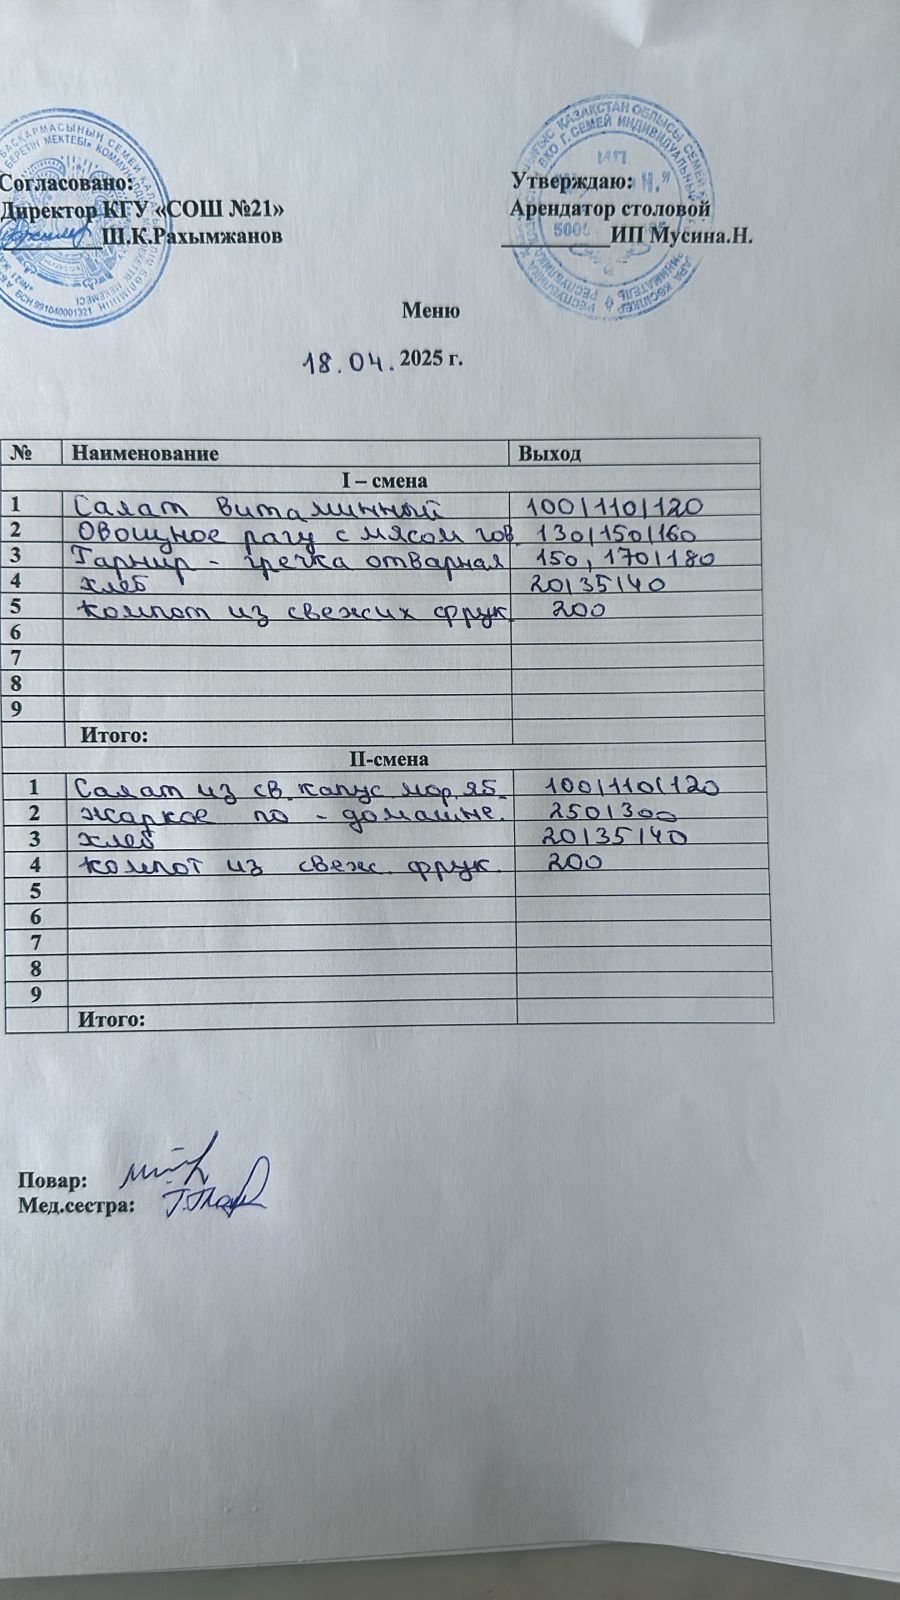 Согласовано:
Директор КГУ «СОШ №21»
Ш.К.Рахымжанов
Утверждаю:
Арендатор столовой
ИП Мусина.Н.
Меню
18.04. 2025 г.
№ Наименование Выход
I – смена
1 Салат витаминный 100/110/120
2 Овощное рагу с мясом гов. 130/150/160
3 Гарнир - гречка отварная 150, 170/180
4 хлеб 20/35/40
5 компот из свежих фрук. 200
6
7
8
9
Итого:
II-смена
1 Салат из св. капус мор. яб. 100/110/120
2 жаркое по - домашне. 250/300
3 хлеб 20/35/40
4 компот из свеж. фрук. 200
5
6
7
8
9
Итого:
Повар:
Мед.сестра: